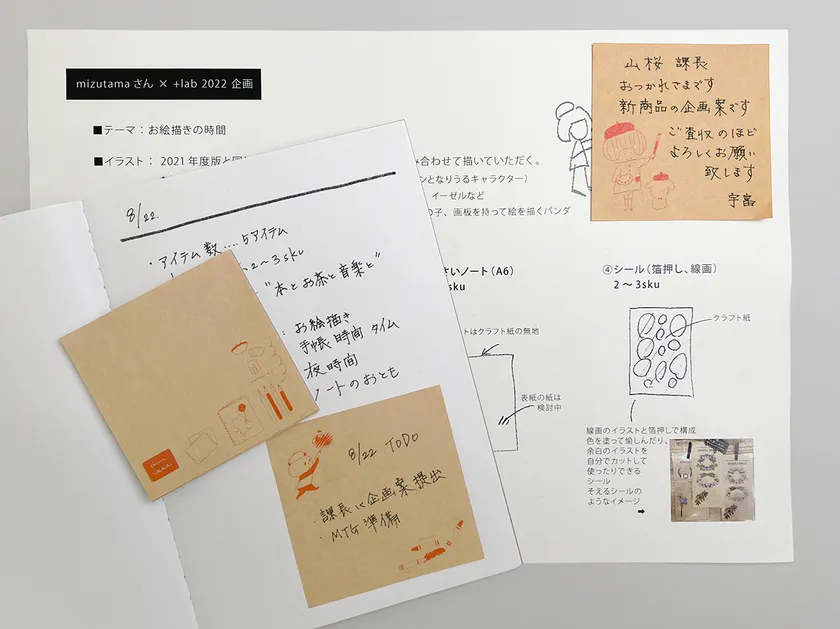 mizutamaさん × +lab 2022 企画
■テーマ：お絵描きの時間
■イラスト： 2021年度版と同
み合わせて描いていただく。
ンとなりうるキャラクター）
イーゼルなど
の子、画板を持って絵を描くパンダ
山桜 課長
おつかれさまです
新商品の企画案です
ご査収のほど
よろしくお願い
致します
宇富
8/22.
・アイテム数....5アイテム
2〜3sku
"本とお茶と音楽と"
お絵描き
手帳時間 タイム
夜時間
ノートのおとも
さいノート（A6）
sku
トはクラフト紙の無地
表紙の紙は
検討中
④シール（箔押し、線画）
2〜3sku
クラフト紙
線画のイラストと箔押しで構成
色を塗って愉しんだり、
余白のイラストを
自分でカットして
使ったりできる
シール
そえるシールの
ようなイメージ
➡
8/22 TODO
・課長に企画案提出
・MTG準備